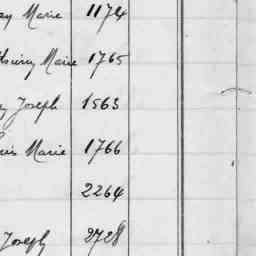 Marie 1174
Marie 1765
Joseph 1563
Marie 1766
2264
Joseph 2728